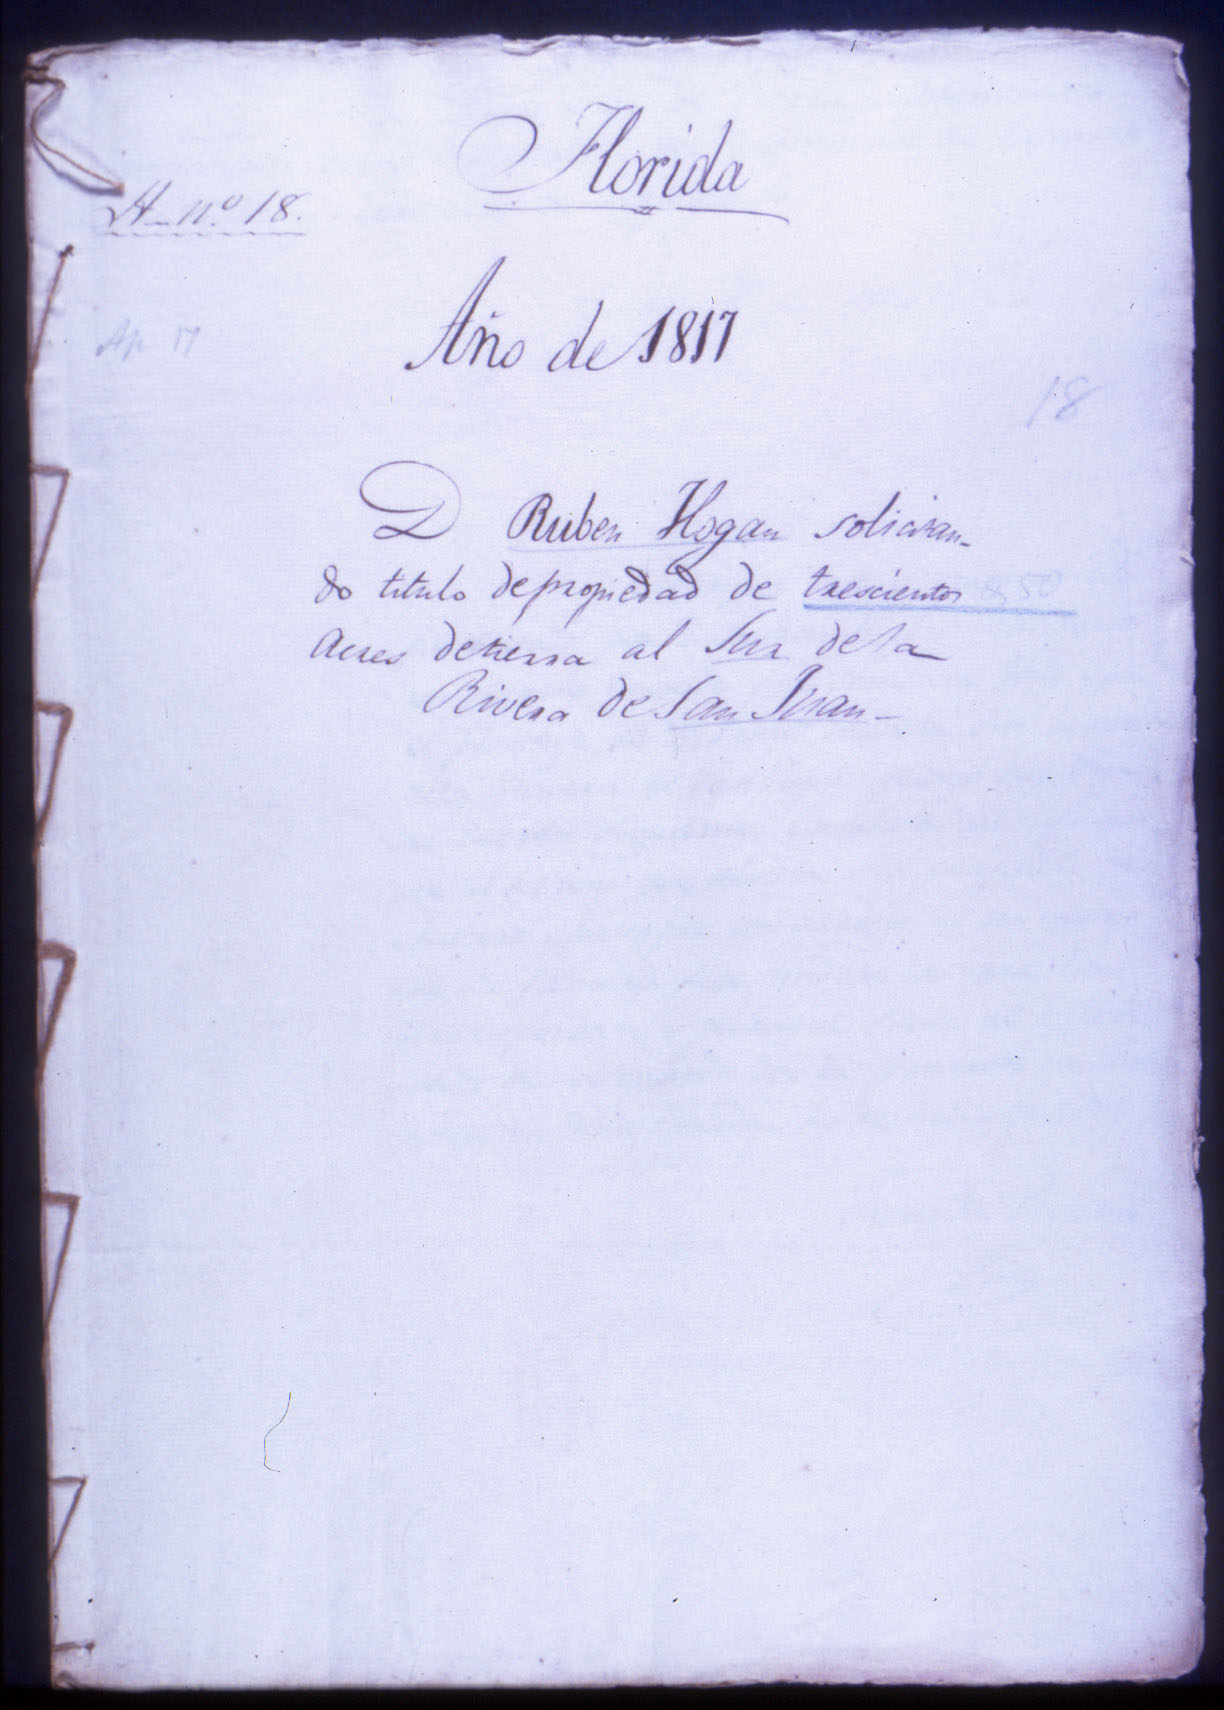 Florida
H. nº 18.
Año de 1817
18
D Ruben Hogan solicitan-
do titulo de propiedad de trescientos 8,50
Acres de tierra al Sur de la
Rivera de San Juan-